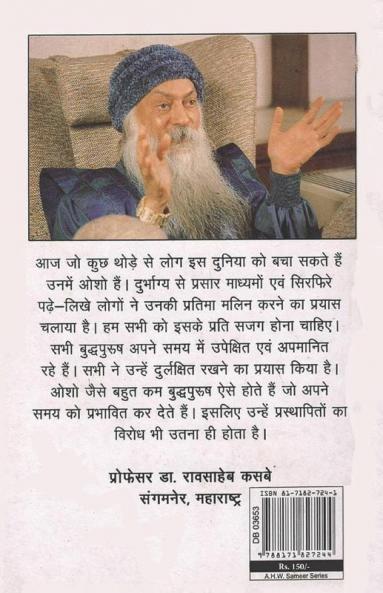 आज जो कुछ थोड़े से लोग इस दुनिया को बचा सकते हैं
उनमें ओशो हैं। दुर्भाग्य से प्रसार माध्यमों एवं सिरफिरे
पढ़े–लिखे लोगों ने उनकी प्रतिमा मलिन करने का प्रयास
चलाया है। हम सभी को इसके प्रति सजग होना चाहिए।
सभी बुद्धपुरुष अपने समय में उपेक्षित एवं अपमानित
रहे हैं। सभी ने उन्हें दुर्लक्षित रखने का प्रयास किया है।
ओशो जैसे बहुत कम बुद्धपुरुष ऐसे होते हैं जो अपने
समय को प्रभावित कर देते हैं। इसलिए उन्हें प्रस्थापितों का
विरोध भी उतना ही होता है।
प्रोफेसर डा. रावसाहेब कसबे
संगमनेर, महाराष्ट्र
ISBN 81-7182-724-1
DB 03653
9 788171 827244
Rs. 150/-
A.H.W. Sameer Series